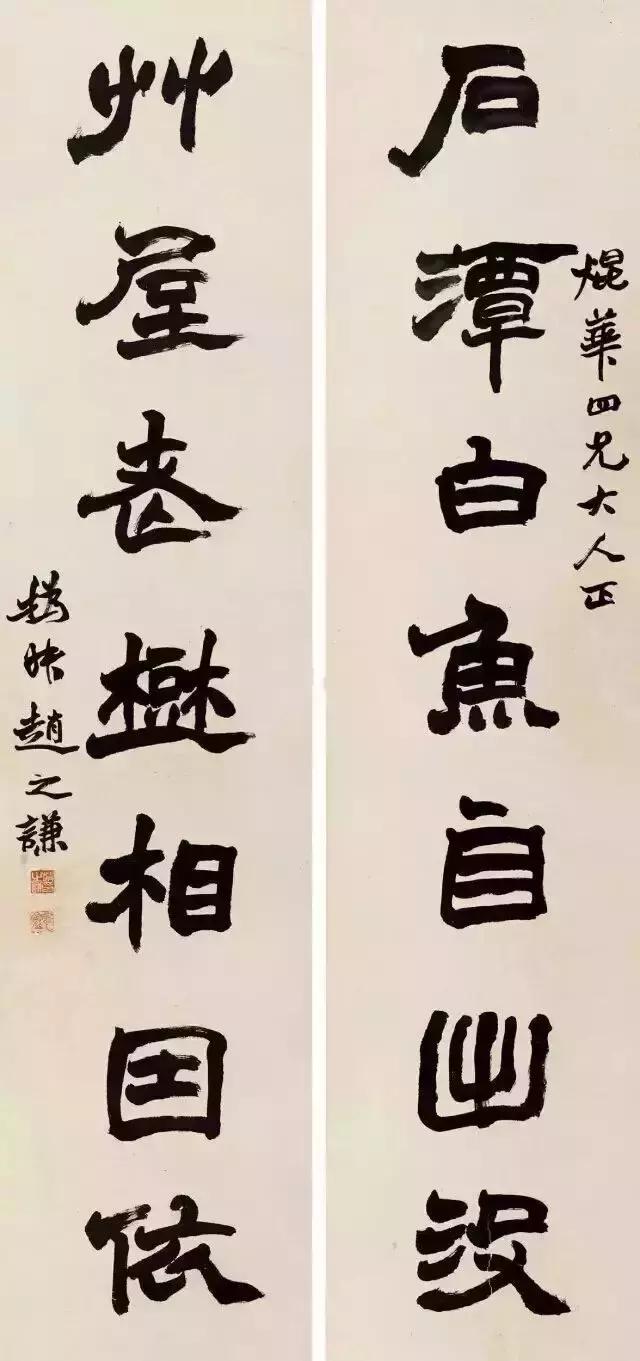 焜華四兄大人正
石潭白魚自出没
艸屋相因依
撝叔趙之謙